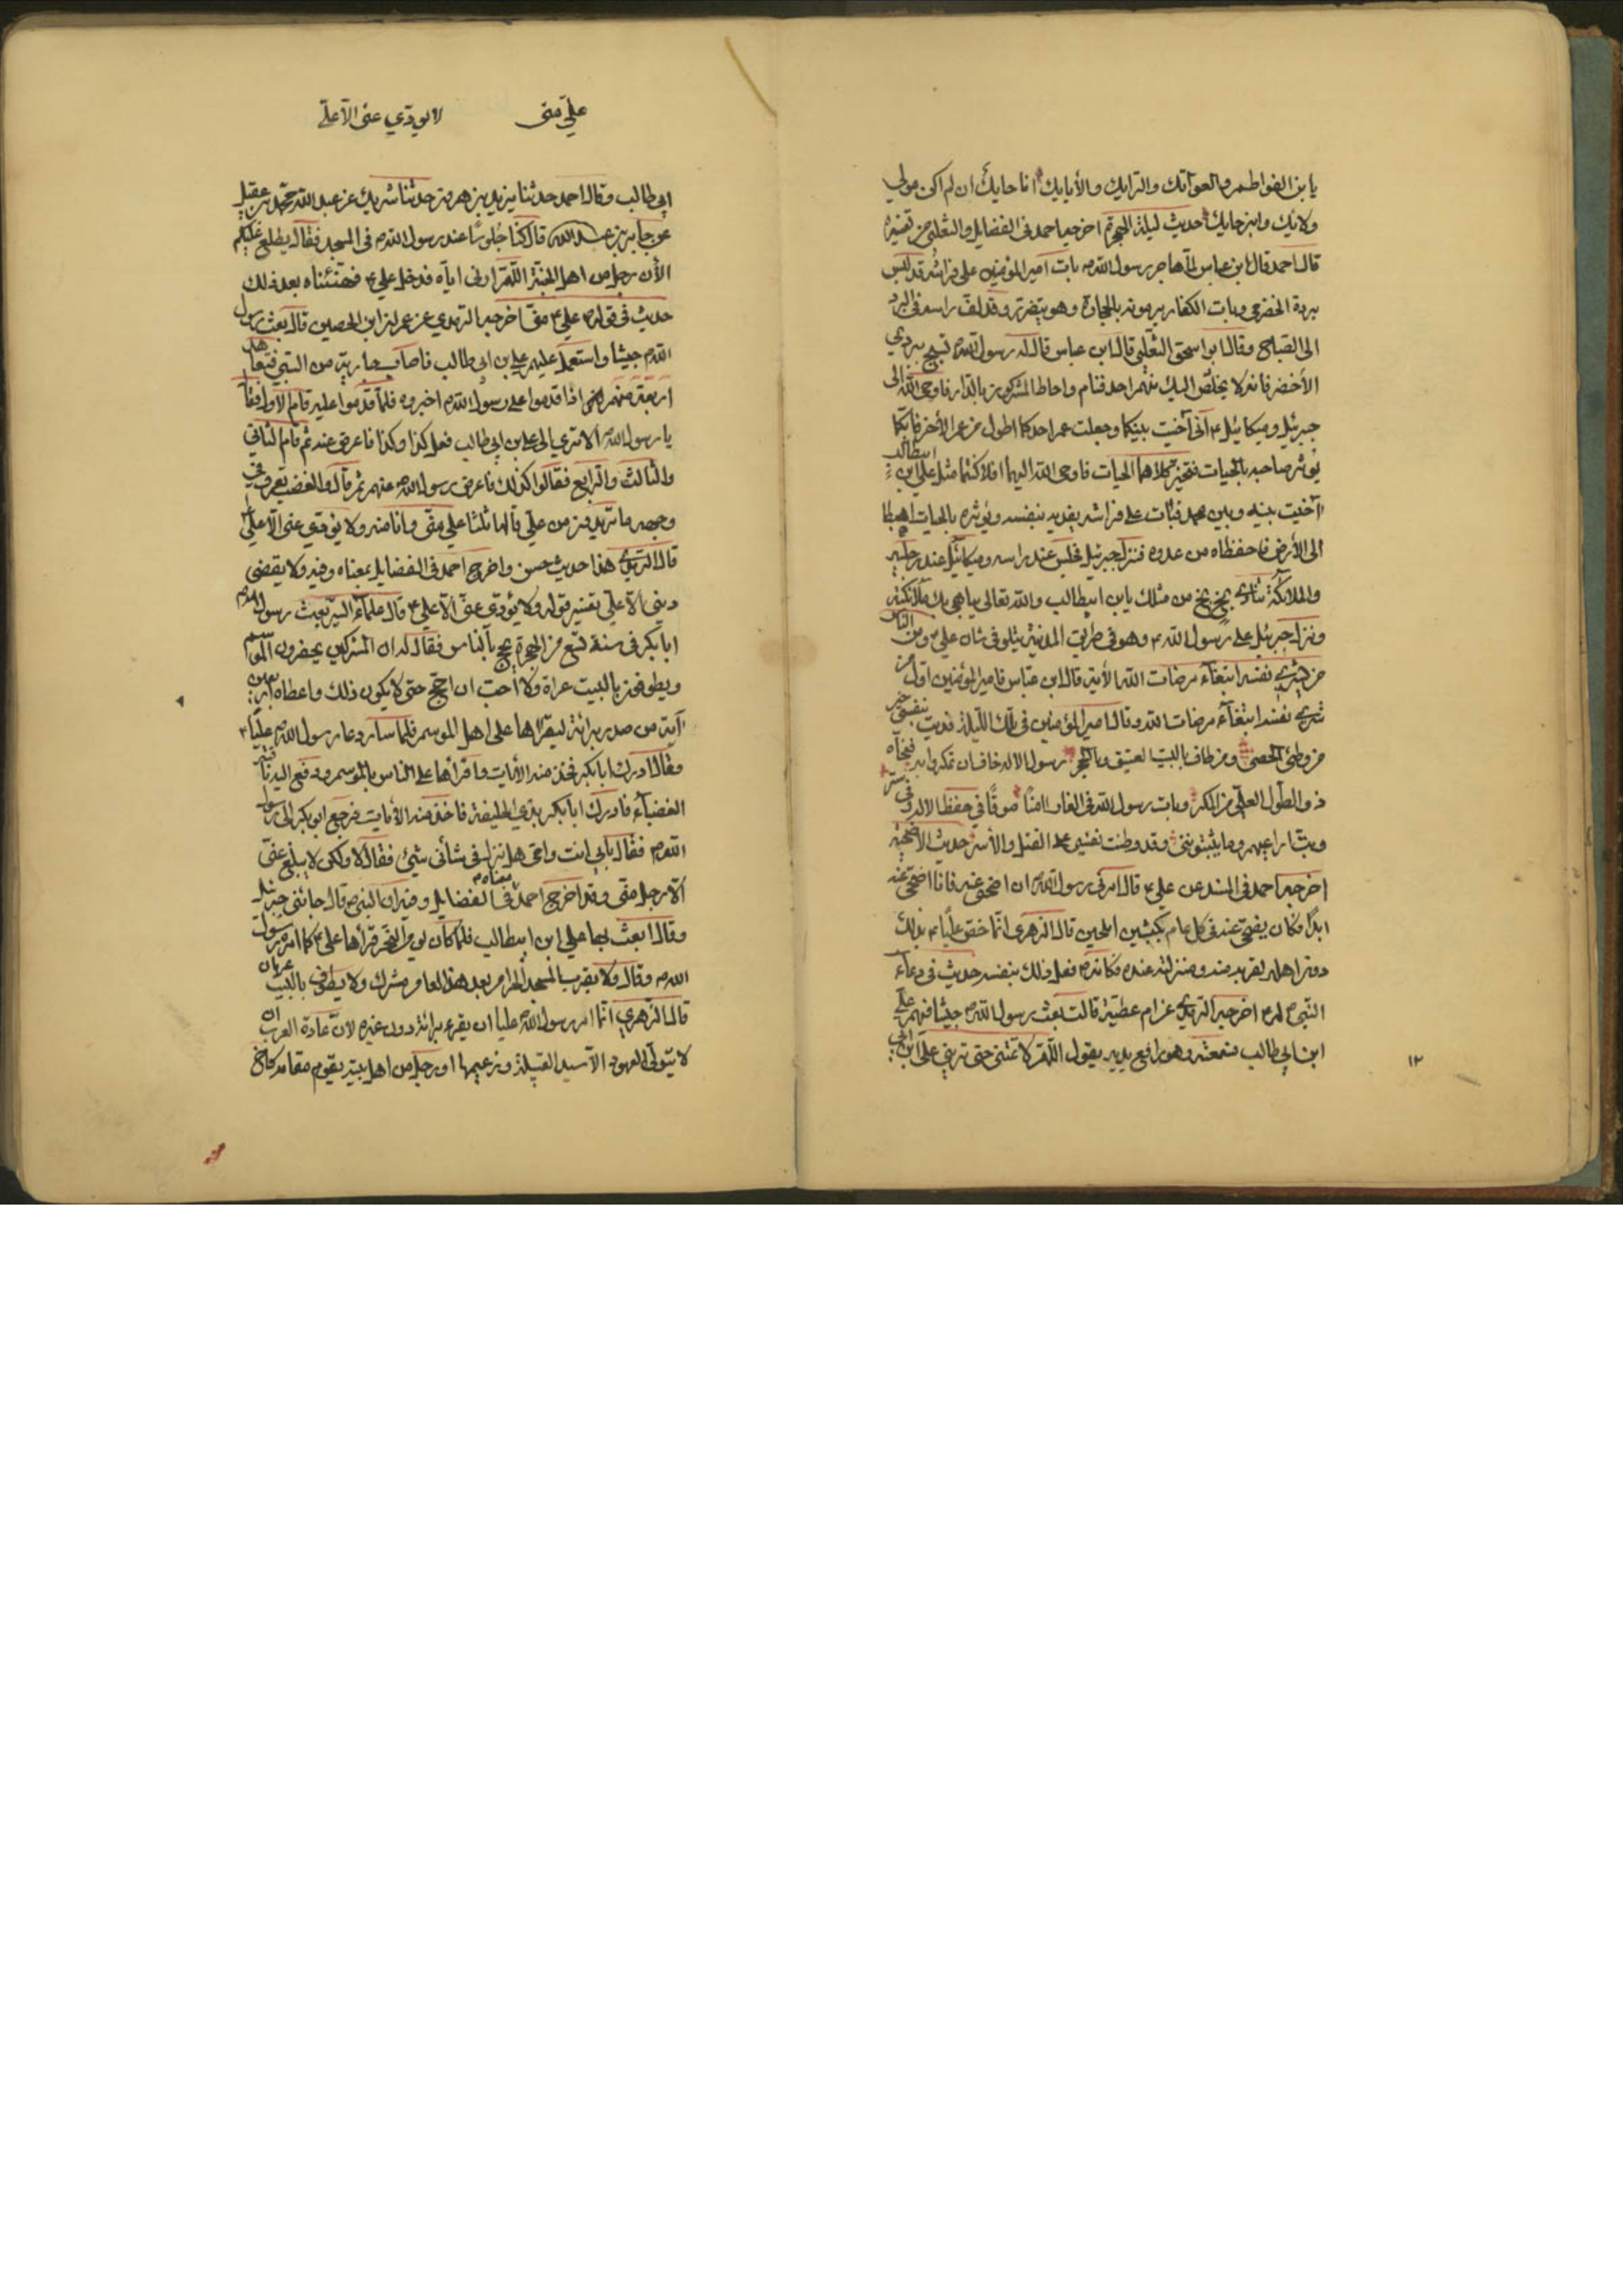 يا بن الفواطم والعواتك والترايك والأبايك انا حايك ان لم اكن مولى
ولائك وابن حايك حديث ليلة الهجرة اخرجه احمد فى الفضايل والثعلبى من تفسيره
قال احمد قال ابن عباس لما هاجر رسول الله ص بات امير المؤمنين على فراشه قد لبس
بردة الخضرمى وبات الكفار يرمونه بالحجارة وهو يتضور وقد لف راسه فى البرد
الى الصباح وقال ابو اسحق الثعلبى قال ابن عباس قال له رسول الله ص تسبح ببردي
الأخضر فانه لا يخلص اليك منهم احد فنام واحاط المشركون بالدار فاوحى الله الى
جبرئيل وميكائيل ع انى آخيت بينكما وجعلت عمر احدكما اطول من عمر الأخر فايكما
يؤثر صاحبه بالحيات فتخير كلاهما الحيات فاوحى الله اليهما افلا كنتما مثل على ابن ابيطالب
آخيت بينه وبين محمد فبات على فراشه يفديه بنفسه ويؤثره بالحيات اهبطا
الى الأرض فاحفظاه من عدوه فنزل جبرئيل فجلس عند راسه وميكائيل عند رجليه
والملائكة تنادى بخ بخ من مثلك يابن ابيطالب والله تعالى يباهى بك ملائكته
ونزل جبرئيل على رسول الله ص وهو فى طريق المدينة يتلو فى شان على ع ومن الناس
من يشرى نفسه ابتغاء مرضات الله الأية قال ابن عباس فامير المؤمنين اول من
شرى نفسه ابتغاء مرضات الله وقال امير المؤمنين فى تلك الليلة فديت بنفسى خير
من وطئ الحصى ومن طاف بالبيت العتيق وبالحجر رسول الاله خاف ان تمكروا به فنجاه
ذو الطول العلى من المكر وبات رسول الله فى الغار امنا موقا فى حفظ الاله وفى ستر
وبت اراعيهم وما يثبتوننى وقد وطنت نفسى على القتل والأسر حديث الاضحية
اخرجه احمد فى المسند عن على ع قال امرنى رسول الله ص ان اضحى عنه فانا اضحى عنه
ابدا فكان يضحى عنه فى كل عام بكبشين املحين قال الزهرى انما خص عليا ع بذلك
دون اهله لقربه منه ومنزلته عنده فكانه ص فعل ذلك بنفسه حديث فى دعاء
النبى ص له ع اخرجه الترمذى عن ام عطية قالت بعث رسول الله ص جيشا فيهم على
ابن ابى طالب فسمعته وهو رافع يديه يقول اللهم لا تمتنى حتى ترينى على ابن ابى
١٢
على منى
لا يودي عنى الا على
ابى طالب وقال احمد حدثنا يزيد بن هرون حدثنا شريك عن عبد الله محمد بن عقيل
عن جابر بن عبد الله قال كنا جلوسا عند رسول الله ص فى المسجد فقال يطلع عليكم
الأن رجل من اهل الجنة اللهم ارنى اياه فدخل على ع فهنئناه بعد ذلك
حديث فى قوله ص على ع منى اخرجه الترمذي عن عمران ابن الحصين قال بعث رسول
الله ص جيشا واستعمل عليهم على بن ابى طالب فاصاب جارية من السبى فتعاهد
اربعة منهم اذا قدموا على رسول الله ص اخبروه فلما قدموا عليه قام الأول فقال
يا رسول الله ص ألا ترى الى على بن ابى طالب فعل كذا وكذا فاعرض عنه ثم قام الثانى
والثالث والرابع فقالوا كذلك فاعرض رسول الله ص عنهم ثم قال والغضب يعرف فى
وجهه ما تريدون من على قالها ثلثا على منى وانا منه ولا يؤدى عنى الا على
قال الترمذى هذا حديث حسن واخرج احمد فى الفضايل بمعناه وفيه ولا يقضى
دينى الا على تفسير قوله ولا يؤدى عنى الا على ع قال علماء السير بعث رسول الله ص
ابا بكر فى سنة تسع من الهجرة يحج بالناس فقال له ان المشركين يحضرون الموسم
ويطوفون بالبيت عراة ولا أحب ان احج حتى لا يكون ذلك واعطاه اربعين
آية من صدر برائة ليقرأها على اهل الموسم فلما سار دعا رسول الله ص عليا ع
وقال ادرك ابا بكر فخذ منه الأيات واقرأها على الناس بالموسم ودفع اليه ناقته
العضباء فادرك ابا بكر بذى الحليفة فاخذ منه الأيات فرجع ابو بكر الى رسول
الله ص فقال بابى انت وامى هل نزل فى شأنى شئ فقال لا ولكن لا يبلغ عنى
الا رجل منى وقد اخرج احمد فى الفضايل معناه وفيه ان النبى ص قال جائنى جبرئيل
وقال ابعث بها على ابن ابيطالب فلما كان يوم النحر قرأها على ع كما امره رسول
الله ص وقال ولا يقرب المسجد الحرام بعد هذا العام مشرك ولا يطوفن بالبيت عريان
قال الزهري انما امر رسول الله ص عليا ان يقرء برائة دون غيره لان عادة العرب ان
لا يتولى العهود الا سيد القبيلة وزعيمها او رجل من اهل بيته يقوم مقامه كاخ